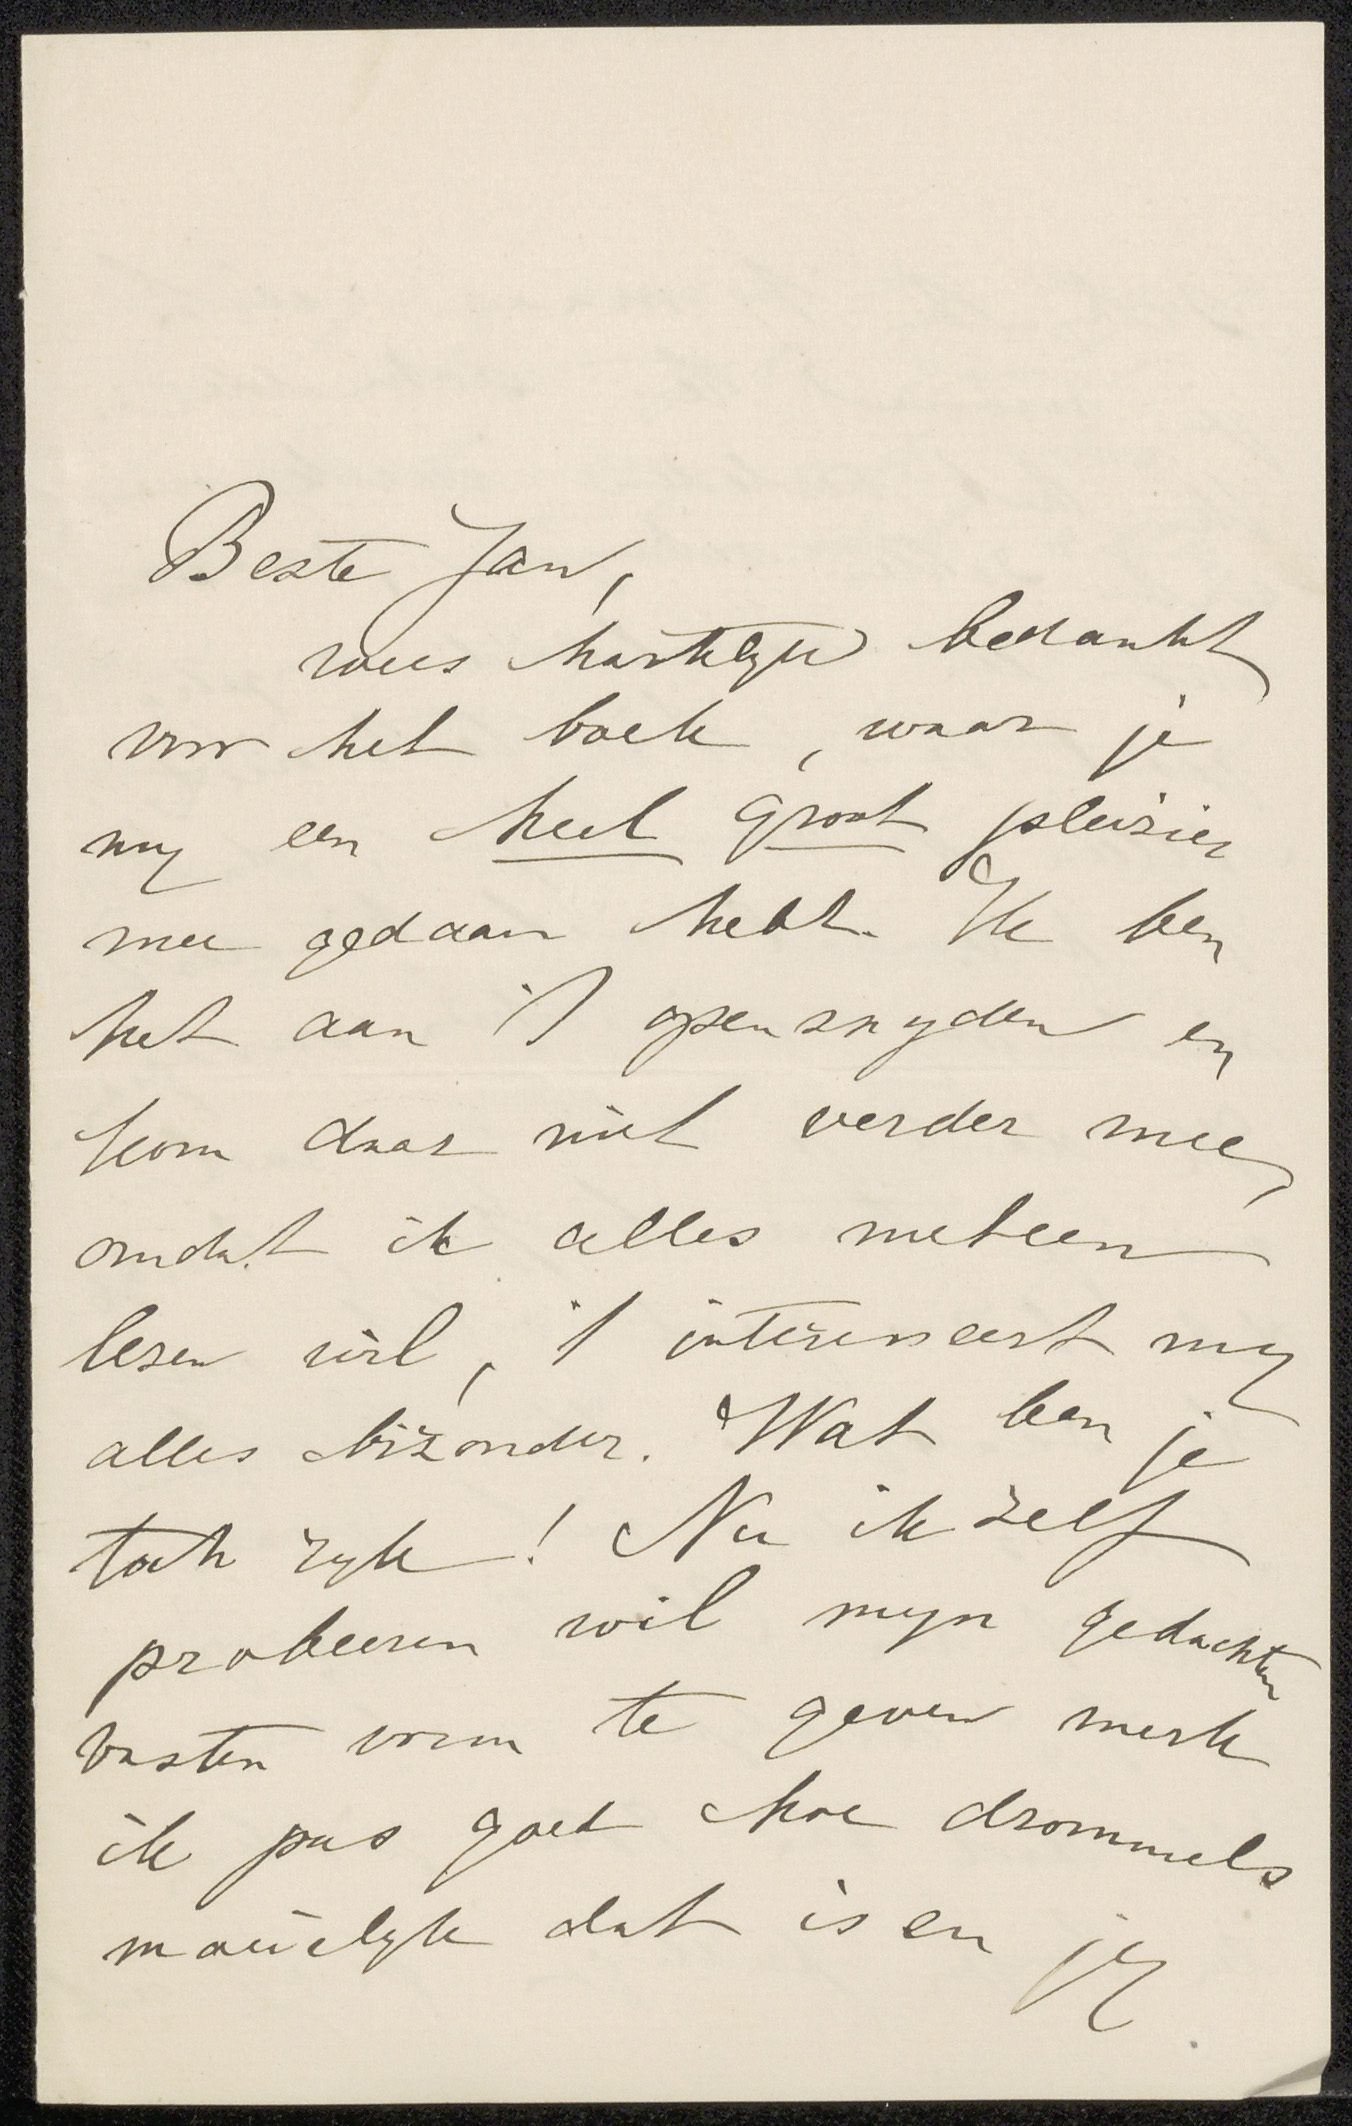 Beste Jan,
wees hartelyk bedankt
voor het boek, waar je
my een heel groot pleizier
mee gedaan hebt. Ik ben
het aan 't opensnyden en
kom daar niet verder mee,
omdat ik alles meteen
lezen wil, 't interesseert my
alles bizonder. Wat ben je
toch ryk! Nu ik zelf
probeeren wil myn gedachten
vasten vorm te geven merk
ik pas goed hoe drommels
moeielyk dat is en jy